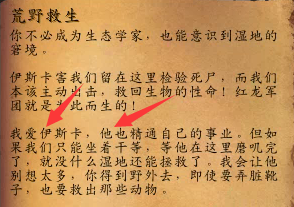 荒野救生
你不必成为生态学家，也能意识到湿地的
窘境。
伊斯卡害我们留在这里检验死尸，而我们
本该主动出击，救回生物的性命！红龙军
团就是为此而生的！
我爱伊斯卡，他也精通自己的事业。但如
果我们只能坐着干等，等他在这里磨叽完
了，就没什么湿地还能拯救了。我会让他
别想太多，你得到野外去，即使要弄脏靴
子，也要救出那些动物。